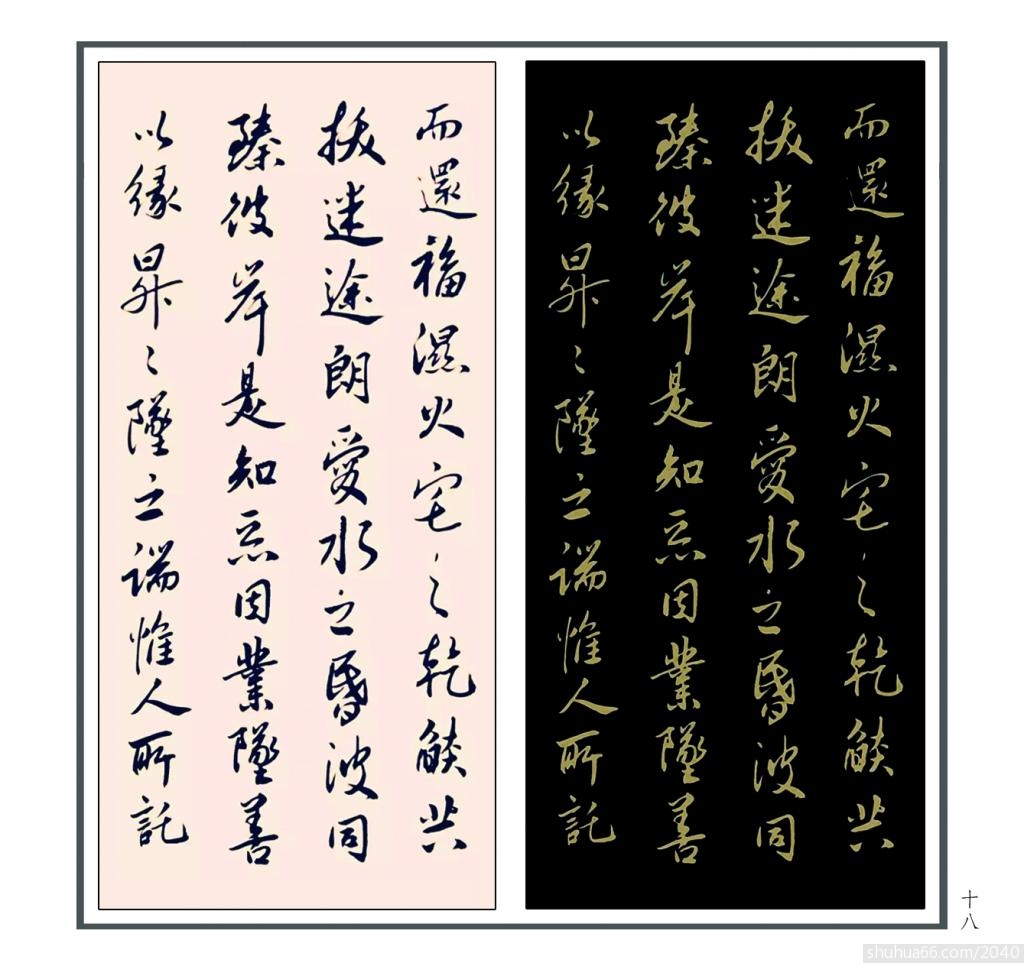 而還福濕火宅之乾燄共
拔迷途朗愛水之昬波同
臻彼岸是知惡因業墜善
以緣昇〻墜之端惟人所託
而還福濕火宅之乾燄共
拔迷途朗愛水之昬波同
臻彼岸是知惡因業墜善
以緣昇〻墜之端惟人所託
十八
shuhua66.com/2040